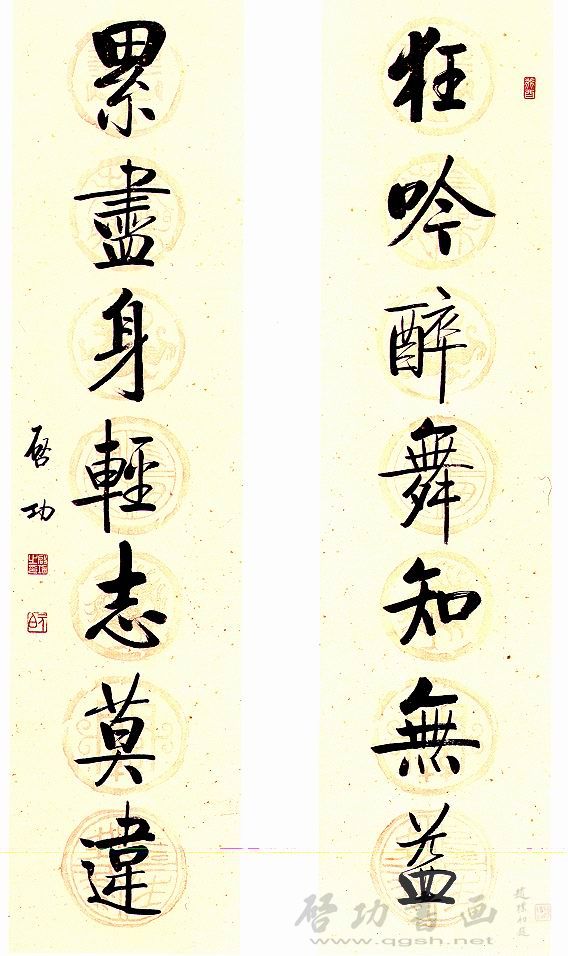 狂吟醉舞知無益
累盡身輕志莫違
啓功
啓功书画
www.qgsh.net